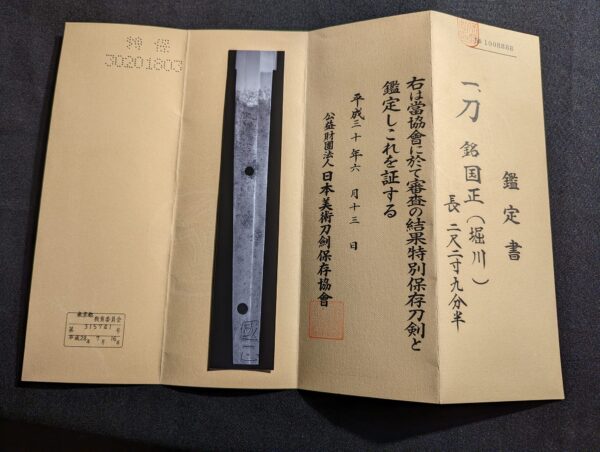 № 1008888
鑑定書
一、刀 銘 国正(堀川)
長 二尺二寸九分半
右は當協會に於て審査の結果特別保存刀剣と
鑑定しこれを証する
平成三十年六月十三日
公益財團法人 日本美術刀劍保存協會
特保
30201803
東京都教育委員会
第 315741 号
平成28年7月16日